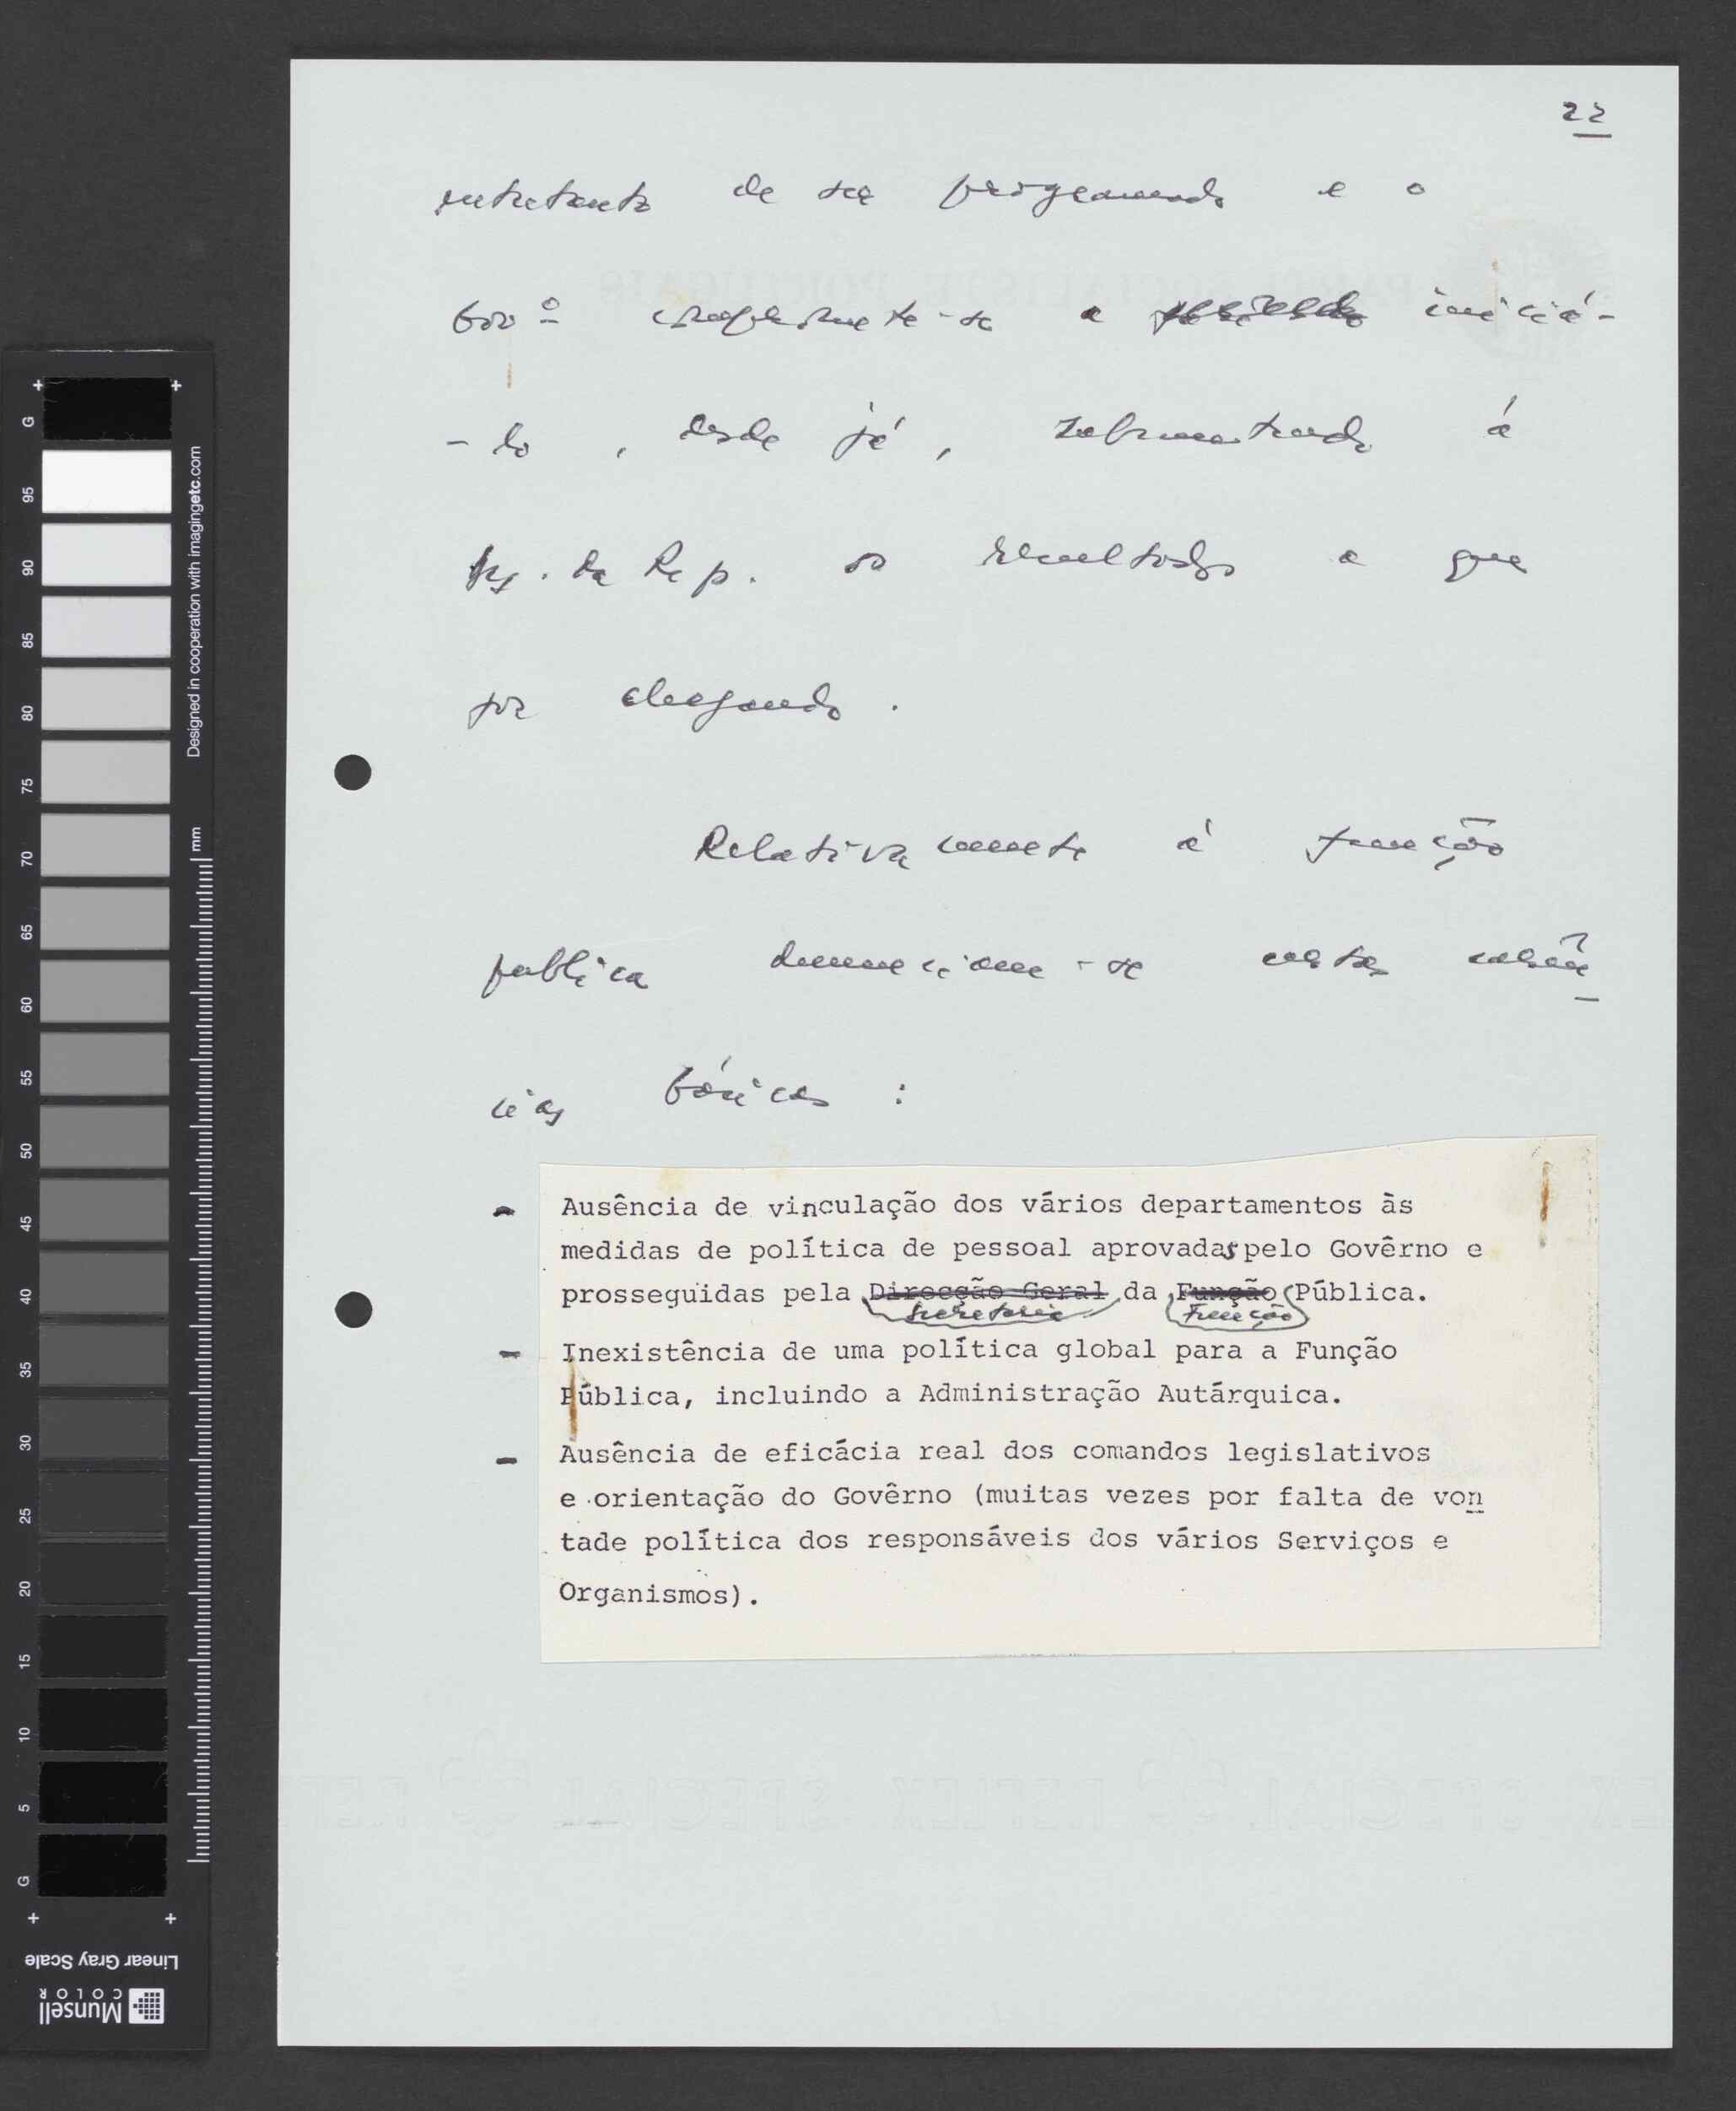 22
entretanto de ser programado e o
Gov.º compromete-se a iniciá-
-lo, desde já, submetendo à
As. da Rep. os resultados a que
for chegando.
Relativamente à função
publica denunciam-se estas carên
cias básicas :
- Ausência de vinculação dos vários departamentos às
medidas de política de pessoal aprovadas pelo Govêrno e
prosseguidas pela Direcção Geral da Função Pública.
Secretaria Função
- Inexistência de uma política global para a Função
Pública, incluindo a Administração Autárquica.
- Ausência de eficácia real dos comandos legislativos
e orientação do Govêrno (muitas vezes por falta de von
tade política dos responsáveis dos vários Serviços e
Organismos).
PARTI SOCIALISTE PORTUGAIS
G 95 90 85 80 75 70 65 60 55 50 45 40 35 30 25 20 15 10 5 G
mm
Designed in cooperation with imagingetc.com
Linear Gray Scale
Munsell
COLOR